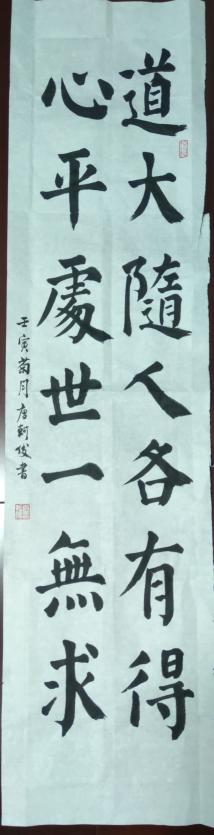 道大隨人各有得
心平處世一無求
壬寅菊月唐軻俊書